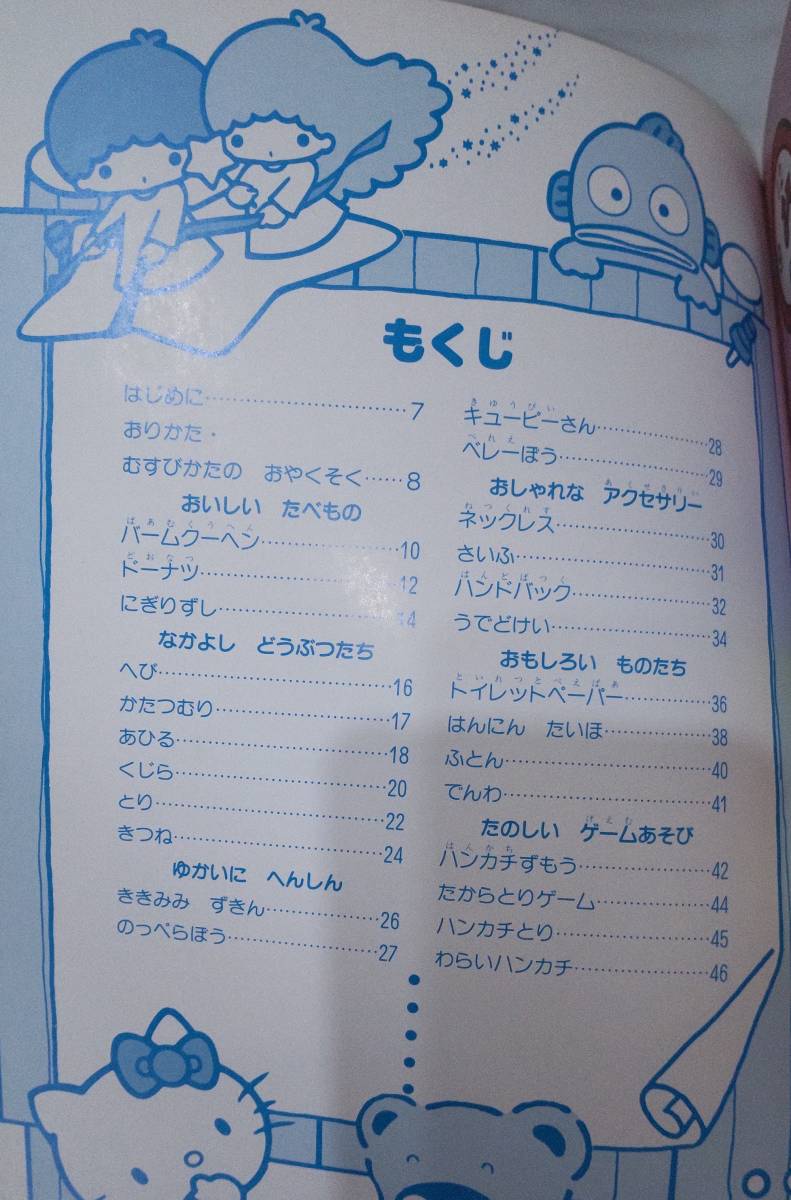 もくじ
はじめに……………………7
おりかた・
むすびかたの　おやくそく……8
おいしい　たべもの
バームクーヘン……………10
ばあむくうへん
ドーナツ……………………12
どおなつ
にぎりずし…………………14
なかよし　どうぶつたち
へび…………………………16
かたつむり…………………17
あひる………………………18
くじら………………………20
とり…………………………22
きつね………………………24
ゆかいに　へんしん
ききみみ　ずきん…………26
のっぺらぼう………………27
きゅうぴい
キューピーさん……………28
べれえ
ベレーぼう…………………29
あくせさりい
おしゃれな　アクセサリー
ねっくれす
ネックレス…………………30
さいふ………………………31
はんどばっく
ハンドバック………………32
うでどけい…………………34
おもしろい　ものたち
といれっとぺえぱあ
トイレットペーパー………36
はんにん　たいほ…………38
ふとん………………………40
でんわ………………………41
げえむ
たのしい　ゲームあそび
はんかち
ハンカチずもう……………42
たからとりゲーム…………44
ハンカチとり………………45
わらいハンカチ……………46